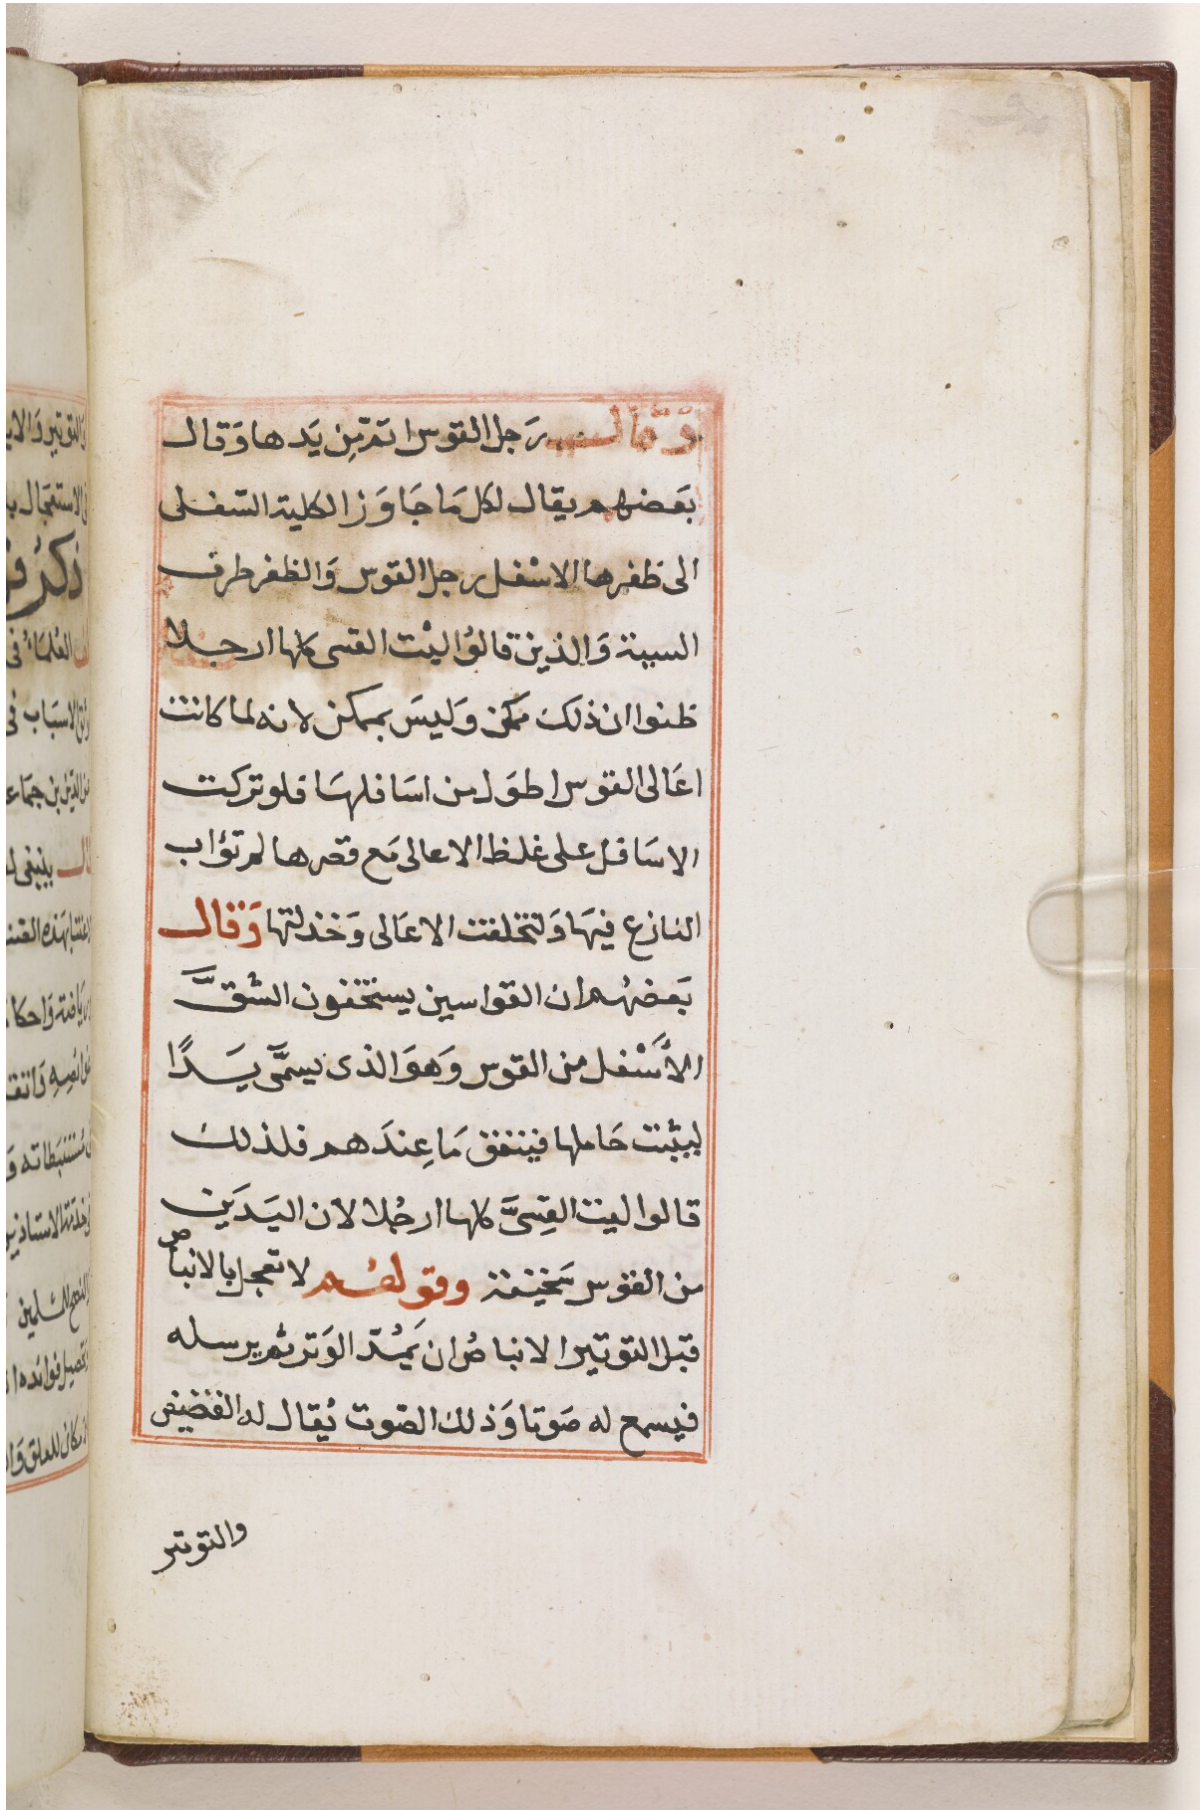 وَقَالَ رَجل القوس اتمّ مِن يَدها وَقال
بَعضهم يقال لكل مَا جَاوَز الكلية السّفلى
الى ظفرها الاسْفل رجل القوس وَالظفر طرف
السية وَالذين قالوُا ليْت القسى كلها ارجلا
ظنوا ان ذلك ممكن وَليسَ بممكن لانه لما كانت
اعَالى القوس اطوَل من اسَافلهَا فلو تركت
الاسَافل على غلظ الاعالى مَع قصرها لم تؤاب
النازع فيهَا وَلتخلفت الاعَالى وَخذلتها وَقال
بَعضهُم ان القواسين يستخفون الشقَّ
الأَسْفل من القوس وَهوَ الذى يسمَّى يَدًا
ليثبت حَاملها فينفق مَا عِندَهم فلذلك
قالوا ليت القِسىَّ كلها ارجُلا لان اليَدَين
من القوس سَخيفة وقولهُم لا تعجل بالانباض
قبل التوتير الانباضُ ان يَمُدّ الوَتر ثم يرسله
فيسمع له صَوتا وَذلك الصّوت يُقال له القضيض
والتوتير